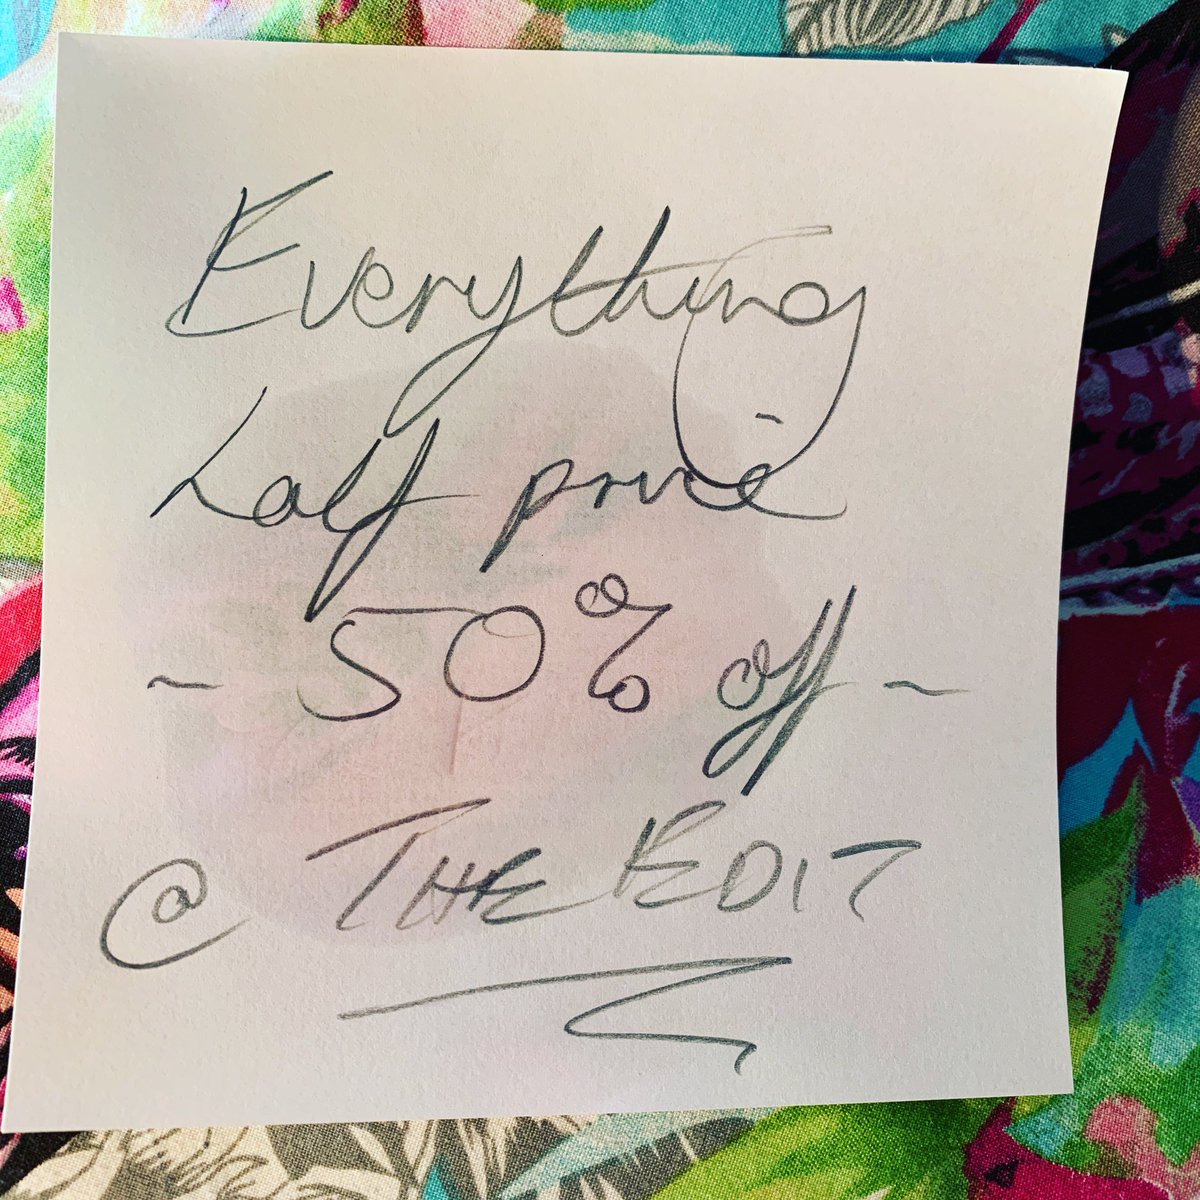 Everything
half price
~ 50% off ~
@ THE EDIT